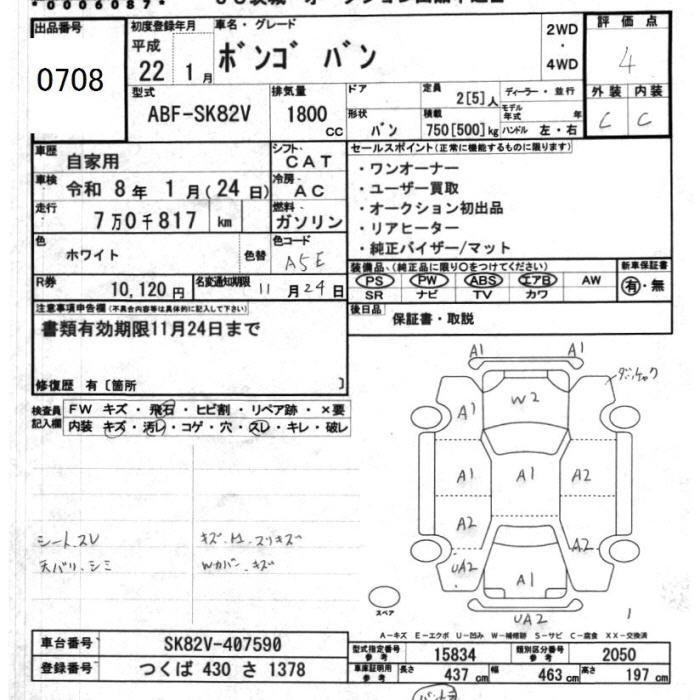 *0006087*
出品番号
0708
初度登録年月
平成
22 1月
車名・グレード
ボンゴ バン
2WD
・
4WD
評価点
4
外装 内装
C C
型式
ABF-SK82V
排気量
1800
CC
ドア
形状
バン
定員
2[5]人
積載
750[500]kg
ディーラー・並行
モデル年式 年
ハンドル 左・右
車歴
自家用
シフト
CAT
車検
令和 8年 1月(24日)
冷房
AC
走行
7万0千817 km
燃料
ガソリン
色
ホワイト
色替
色コード
A5E
R券
10,120円
名変通知期限
11月24日
セールスポイント(正常に機能するものに限ります)
・ワンオーナー
・ユーザー買取
・オークション初出品
・リアヒーター
・純正バイザー/マット
装備品、(純正品に限り○をつけてください)
PS PW ABS エアB AW
SR ナビ TV カワ
新車保証書
有・無
後日品
保証書・取説
注意事項申告欄(不具合内容等は具体的に記入して下さい)
書類有効期限11月24日まで
修復歴 有〔箇所 〕
検査員
記入欄
FW キズ・飛石・ヒビ割・リペア跡・×要
内装 キズ・汚レ・コゲ・穴・スレ・キレ・破レ
シートスレ
天バリ、シミ
Wカバー、キズ
A1 A1
W2
A1
A1 A1 A2
A2
A2
UA2
A1
UA2
1
スペア
A-キズ E-エクボ U-凹み W-補修跡 S-サビ C-腐食 XX-交換済
車台番号
SK82V-407590
登録番号
つくば 430 さ 1378
型式指定番号
参考
15834
類別区分番号
参考
2050
車庫証明用
参考
長さ 437 cm
幅 463 cm
高さ 197 cm